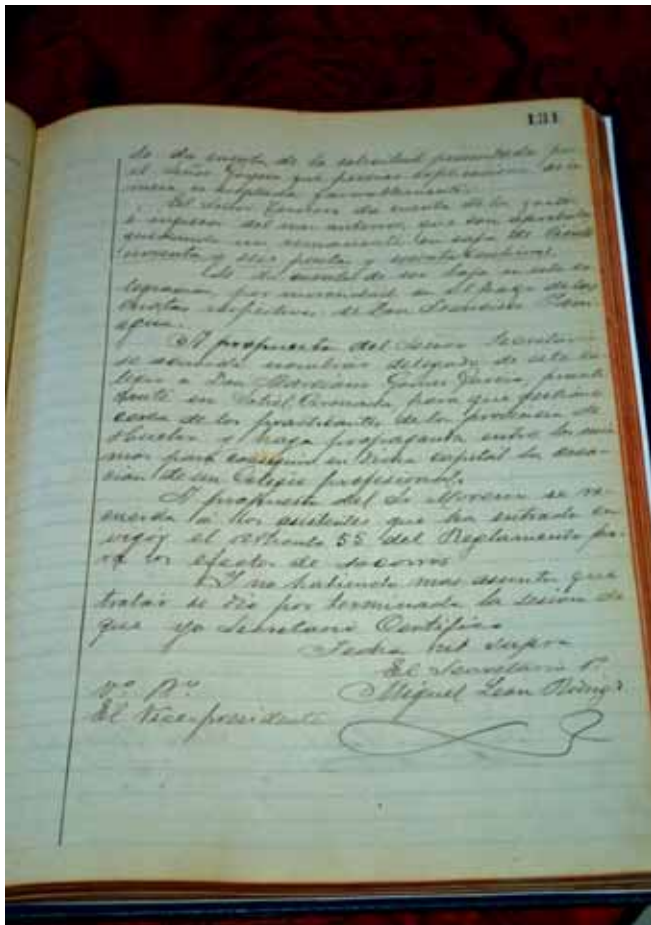 131
Se da cuenta de la solicitud presentada por
el Señor que
es aceptada favorablemente.
El Señor da cuenta de los gastos
e ingresos del mes anterior, que son aprobados
quedando un remanente en caja de
noventa y seis pesetas y sesenta céntimos.
Se da cuenta de ser baja en este Co-
legio por morosidad en el pago de las
cuotas respectivas, de Don Francisco
A propuesta del Señor Secretario
se acuerda nombrar delegado de este Co-
legio a Don Marciano Gómez García, practi-
cante en para que gestione
cerca de los practicantes de la provincia de
Huelva y haga propaganda entre los mis-
mos para conseguir en dicha capital la crea-
ción de un Colegio profesional.
A propuesta del Sr Moreno se re-
cuerda a los asistentes que ha entrado en
vigor el artículo 55 del Reglamento pa-
ra los efectos de socorros
Y no habiendo mas asuntos que
tratar se dio por terminada la sesión de
que yo Secretario Certifico
Fecha ut supra
El Secretario
Vº Bº
Miguel Leon
El Vice-presidente